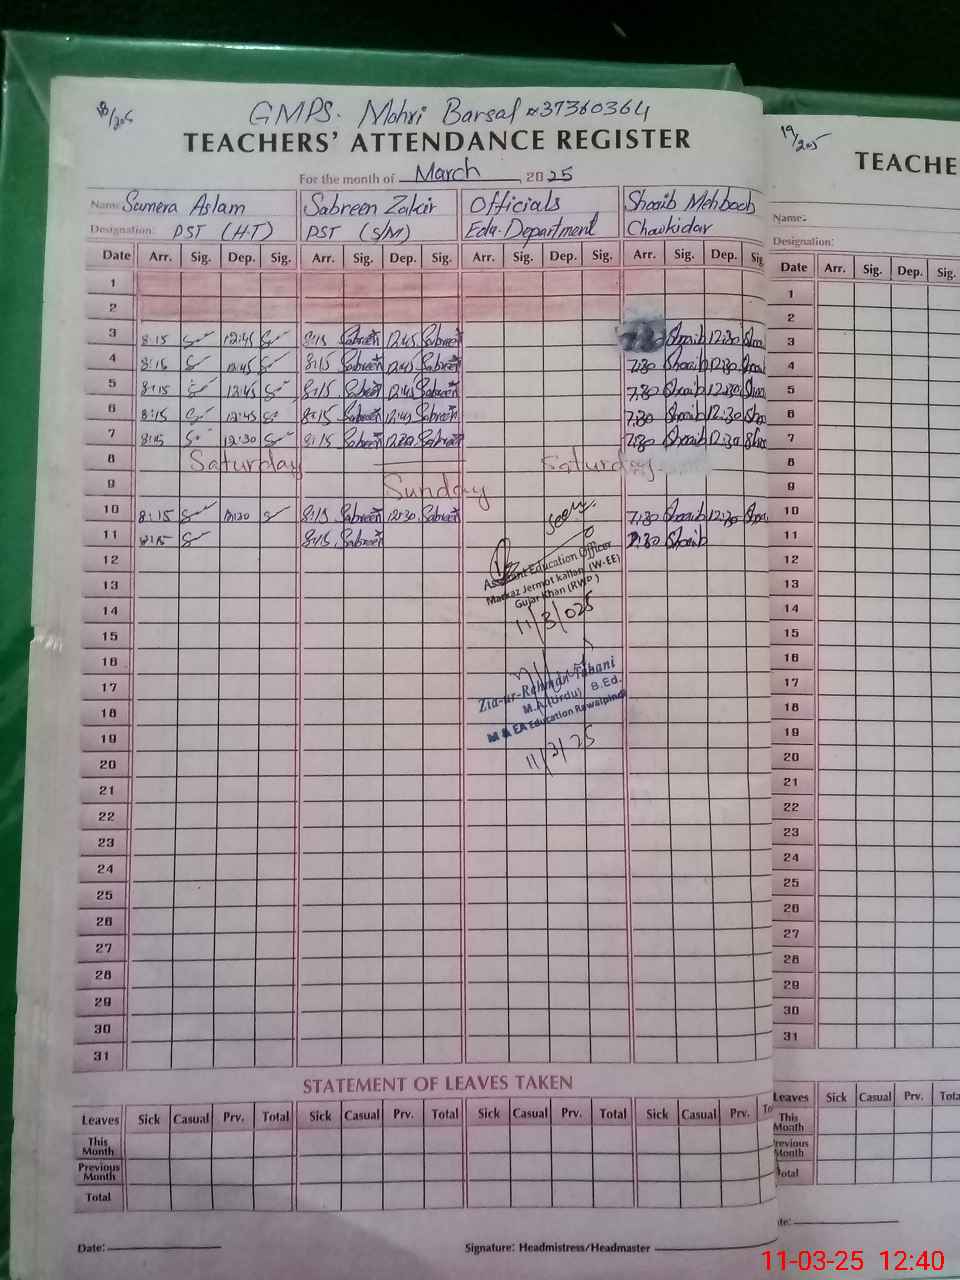 18/205
GMPS. Mohri Barsal #37360364
TEACHERS' ATTENDANCE REGISTER
For the month of March, 2025
Name: Sumera Aslam Sabreen Zakir Officials Shoaib Mehboob
Designation: PST (H.T) PST (S/M) Edu. Department Chowkidar
Date Arr. Sig. Dep. Sig. Arr. Sig. Dep. Sig. Arr. Sig. Dep. Sig. Arr. Sig. Dep. Sig
1
2
3 8:15 12:45 8:15 Sabreen 12:45 Sabreen Shoaib 12:30 Shoa
4 8:15 12:45 8:15 Sabreen 12:45 Sabreen 7:30 Shoaib 12:30 Shoai
5 8:15 12:45 8:15 Sabreen 12:45 Sabreen 7:30 Shoaib 12:30 Shoa
6 8:15 12:45 8:15 Sabreen 12:45 Sabreen 7:30 Shoaib 12:30 Sho
7 8:15 12:30 8:15 Sabreen 12:30 Sabreen 7:30 Shoaib 12:30 Shoa
8 Saturday Saturday
9 Sunday
10 8:15 12:30 8:15 Sabreen 12:30 Sabreen 7:30 Shoaib 12:30 Shoa
11 8:15 8:15 Sabreen 7:30 Shoaib
12
13
14
15
16
17
18
19
20
21
22
23
24
25
26
27
28
29
30
31
Seen.
Assistant Education Officer
Markaz Jermot kallan (W-EE)
Gujar Khan (RWP)
11/3/025
Zia-ur-Rehman
M.A (Urdu) B.Ed.
M & EA Education Rawalpindi
11/3/25
STATEMENT OF LEAVES TAKEN
Leaves Sick Casual Prv. Total Sick Casual Prv. Total Sick Casual Prv. Total Sick Casual Prv. To
This Month
Previous Month
Total
Date: Signature: Headmistress/Headmaster
19/205
TEACHE
Name:
Designation:
Date Arr. Sig. Dep. Sig.
1
2
3
4
5
6
7
8
9
10
11
12
13
14
15
16
17
18
19
20
21
22
23
24
25
26
27
28
29
30
31
Leaves Sick Casual Prv. Tota
This Month
revious Month
otal
te:
11-03-25 12:40